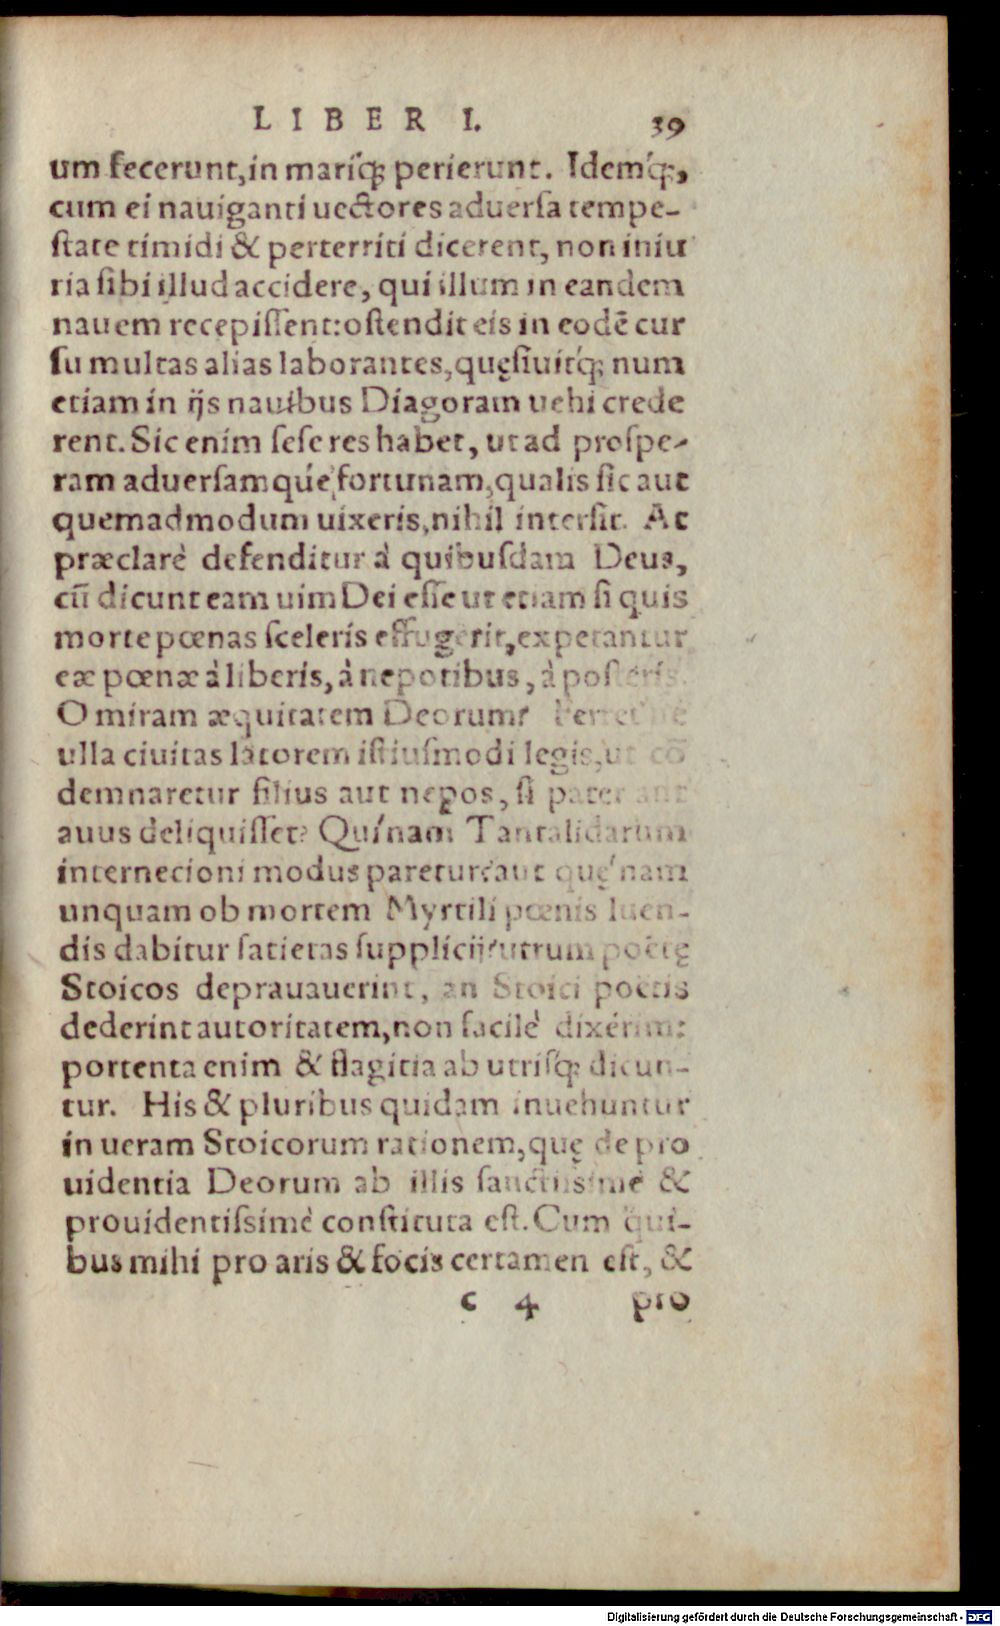 LIBER I. 39
um fecerunt, in mariq́; perierunt. Idemq́;,
cum ei nauiganti uectores aduersa tempe-
state timidi & perterriti dicerent, non iniu
ria sibi illud accidere, qui illum in eandem
nauem recepissent: ostendit eis in eodē cur
su multas alias laborantes, quęsiuitq́; num
etiam in ijs nauibus Diagoram uehi crede
rent. Sic enim sese res habet, ut ad prospe-
ram aduersamque fortunam, qualis sic aut
quemadmodum uixeris, nihil intersit. Ac
præclarè defenditur à quibusdam Deus,
cũ dicunt eam uim Dei esse ut etiam si quis
morte pœnas sceleris effugerit, expetantur
eæ pœnæ à liberis, à nepotibus, à posteris.
O miram æquitatem Deorum? Ferret ne
ulla ciuitas latorem istiusmodi legis, ut cō
demnaretur filius aut nepos, si pater aut
auus deliquisset? Quínam Tantalidarum
internecioni modus paretur? aut quę́nam
unquam ob mortem Myrtili pœnis luen-
dis dabitur satietas supplicij? utrum poëtę
Stoicos deprauauerint, an Stoici poëtis
dederint autoritatem, non facilè dixérim:
portenta enim & flagitia ab utrisq́; dicun-
tur. His & pluribus quidam inuehuntur
in ueram Stoicorum rationem, quę de pro
uidentia Deorum ab illis sanctissimè &
prouidentissimè constituta est. Cum qui-
bus mihi pro aris & focis certamen est, &
c 4 pro
Digitalisierung gefördert durch die Deutsche Forschungsgemeinschaft - DFG